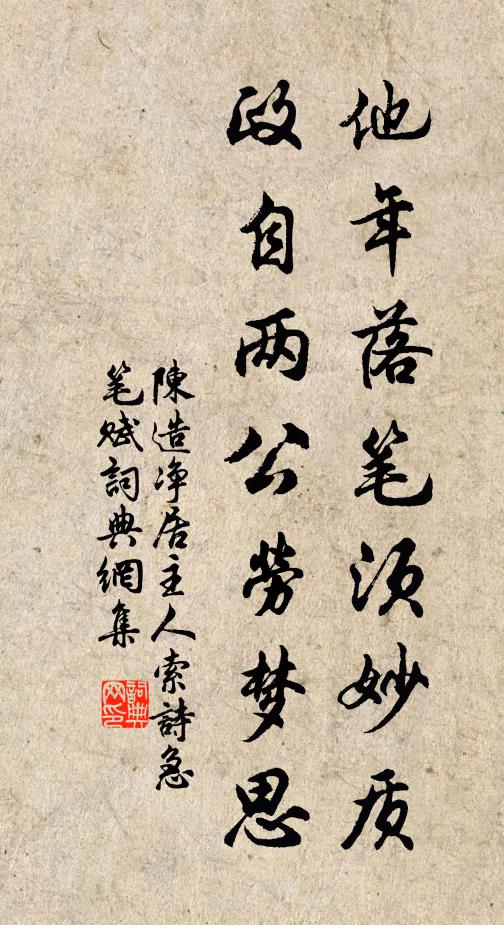 他年落笔须妙质
政自两公劳梦思
陳造浄居主人索詩急
笔赋詞典網集
詞典
网印